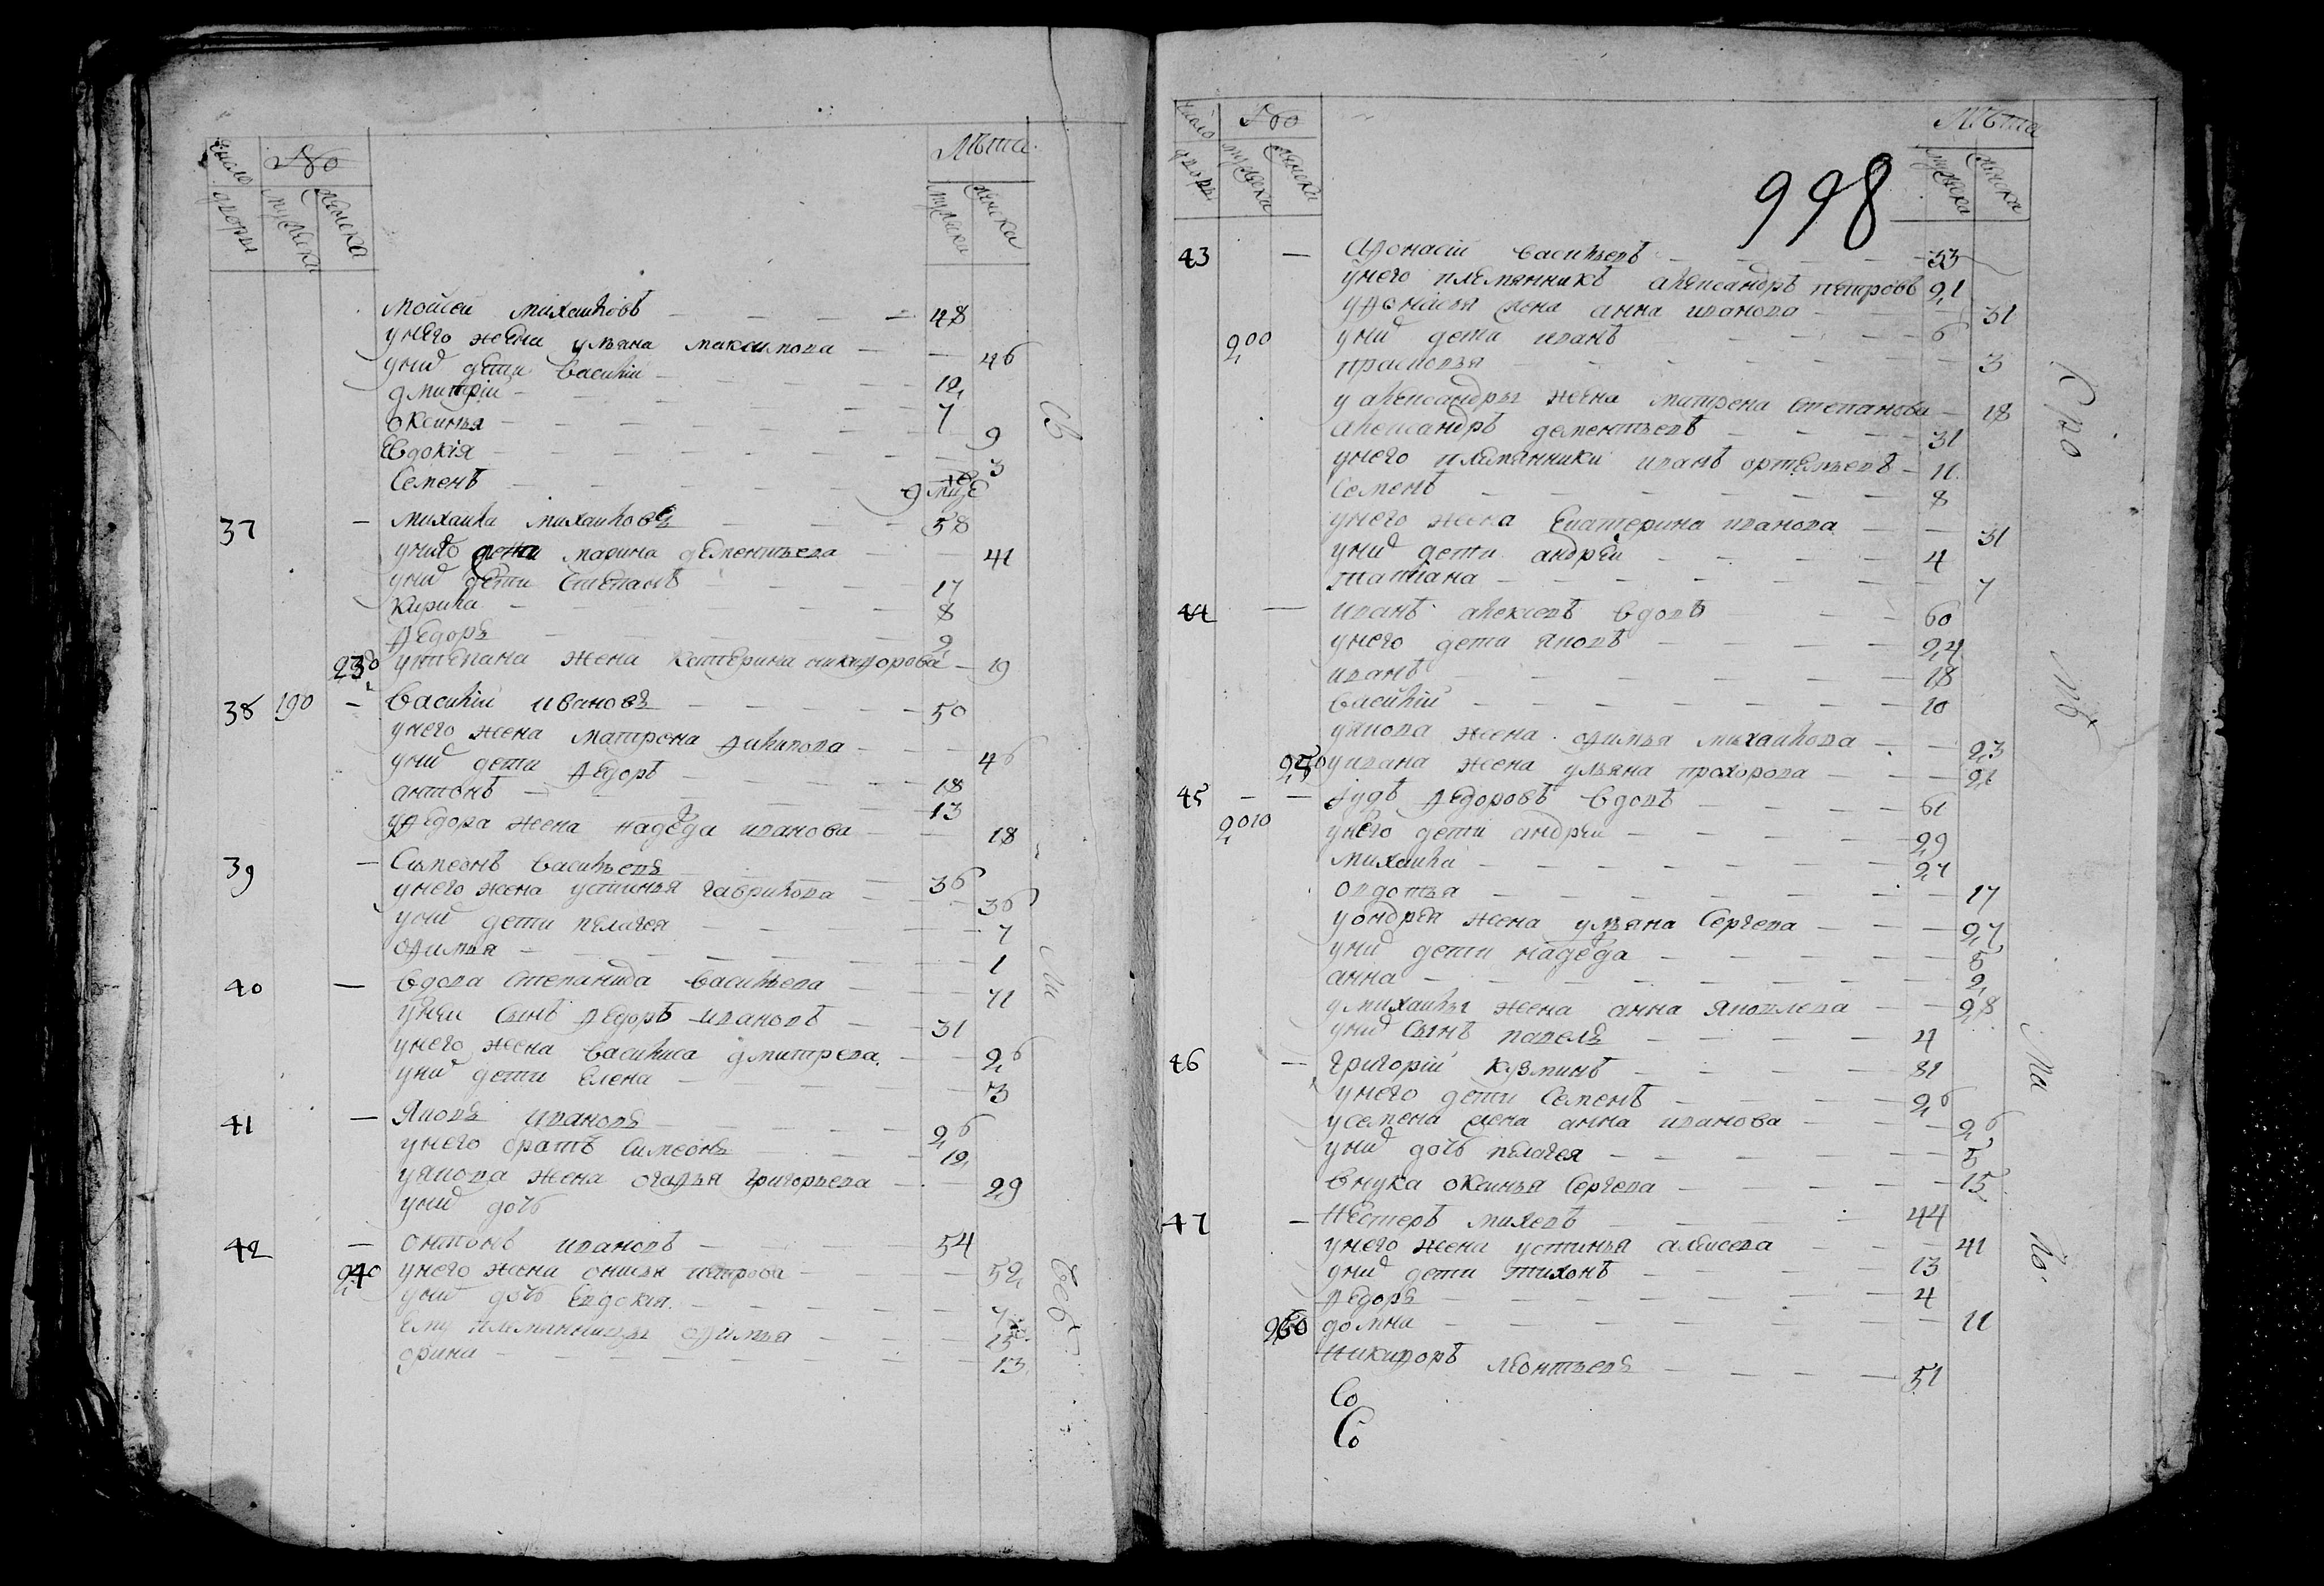 число дворы № мужска женска Лѣта мужска женска
Моисеи Михаиловъ 48
у него жена ульяна максимова 46
у них дети Василиï 12
дмитрïи 7
оксинья 9
Евдокïя 3
Семенъ
37 Михаила Михаиловъ 58
у него марина дементьева 41
у них дети Степанъ 17
Кирила 8
Ѳедоръ 2
230 у степана жена катерина никиѳорова 19
38 190 Василïи Ивановъ 50
у него жена матрена Ѳилипова 46
у них дети Ѳедоръ 18
антонъ 13
у Ѳедора жена надеда иванова 18
39 Симеонъ Васильевъ 36
у него жена устинья гаврилова 36
у них дети пелагея 7
оѳимья 1
40 вдова степанида васильева 71
у неи сынъ Ѳедоръ ивановъ 31
у него жена василиса дмитрева 26
у них дети елена 3
41 Яковъ ивановъ 26
у него братъ симеонъ 12
у якова жена огаѳья григорьева 29
у них дочь
42 онтонъ ивановъ 54
240 у него жена онисья петрова 52
у них дочь Евдокия 7
ему племянницы оѳимья 15
орина 13
Св
Ми
число дворы № мужска женска Лѣта мужска женска
998
43 Аѳонасïи Васильевъ 33
у него племянникъ александръ петровъ 21
у аѳонасья жена анна иванова 31
200 у них дети иванъ 6
прасковья 3
у александры жена матрена степанова 18
александръ дементьевъ 31
у него племянники иванъ ортемьевъ 11
Семенъ 8
у него жена Екатерина иванова 31
у них дети андреи 4
татïана 7
44 иванъ алексевъ вдовъ 60
у него дети яковъ 24
иванъ 18
василïи 10
у якова жена оѳимья михаилова 23
250 у ивана жена ульяна прохорова 21
45 Ѳедоровъ вдовъ 61
2010 у него дети андреи 29
михаила 27
овдотья 17
у ондрея жена ульяна сергева 27
у них дети надеда 5
анна 2
у михаилы жена анна яковлева 28
у них сынъ павелъ 4
46 григорïи кузминъ 81
у него дети семенъ 26
у семена жена анна иванова 26
у них дочь пелагея 5
внука оксинья сергева 15
47 нестеръ михевъ 44
у него жена устинья алексева 41
у них дети тихонъ 13
Ѳедоръ 4
260 домна 11
никиѳоръ леонтьевъ 51
Со
Со
Ма